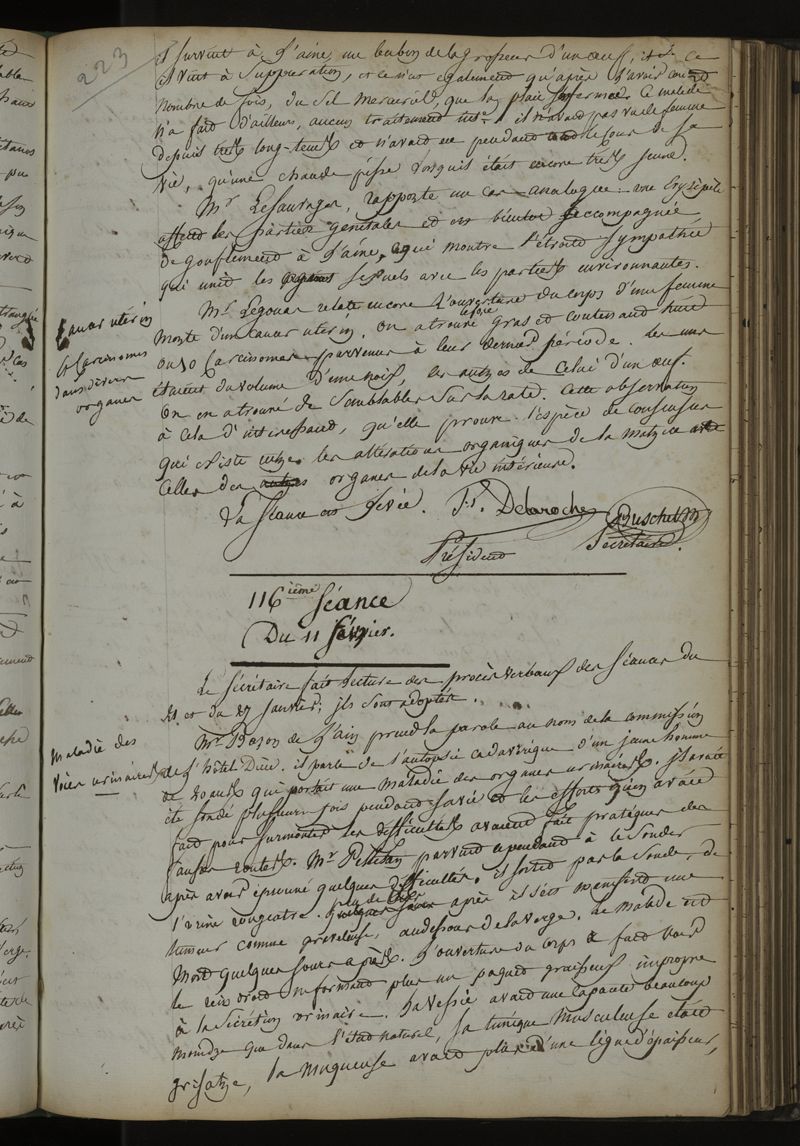 223
il survint à l'aine, un bubon de la grosseur d'un œuf, et ce
vint à Suppuration, et ce n'est également qu'après l'avoir
nombre de fois, du Sel Mercuriel, que la plaie fermée. Ce malade
n'a fait d'ailleurs, aucun traitement il n'avait pas vu de femme
depuis très long-tems et n'avait eu pendant le cour de sa
vie, qu'une chaude pisse lorsqu'il était encore très jeune.
Mr Lesauvage, rapporte un cas analogue : une Erysipèle
affecte les parties genitales et est bientot accompagnée
de gonflement à l'aine, ce qui montre l'étroite sympathie
qui unit les organes sexuels avec les parties environnantes.
Cancer utérin
et Carcinomes
dans divers
organes
Mr. Legouas relate encore l'ouverture du corps d'une femme
morte d'un cancer utérin. On a trouvé le foie gras et contenant huit
ou 10 Carcinomes parvenus à leur dernier période. Les uns
étaient du volume d'une noix, les autres de celui d'un œuf.
On en a trouvé de Semblables Sur la rate. Cette observation
à cela d'intéressant, qu'elle prouve l'espèce de consensus
qui existe entre les altérations organiques de la matrice et
celles des autres organes de la vie intérieure.
La Séance est levée. Delaroche Puschel
Président Secrétaire.
116ième Séance
Du 11 Février.
Le Secrétaire fait lecture des procès verbaux des Séances du
21 et du 27 Janvier ; ils sont adoptés.
Maladie des
Voies urinaires
Mr. de l'ain prend la parole au nom de la commission
de l'hôtel Dieu. il parle de l'autopsie cadavérique d'un jeune homme
de 20 ans qui portait une maladie des organes urinaires. il avait
été sondé plusieurs fois pendant sa vie et les efforts qu'on avait
fait pour surmonter les difficultés avaient fait pratiquer des
fausses routes. Mr Pelletan parvint cependant à le Sonder
après avoir éprouvé quelques difficultés. il sortit par la Sonde, de
l'urine rougeatre. peu de après il se manifesta une
tumeur comme graveleuse, audessous de la verge. Le Malade est
Mort quelques jours après. L'ouverture du corps a fait voir
le rein droit ne formant plus un paquet graisseux impropre
à la Sécrétion urinaire. La vessie avait une capacité beaucoup
moindre que dans l'état naturel, sa tunique Musculeuse était
grisatre, la Muqueuse avait plus d'une ligne d'épaisseur,